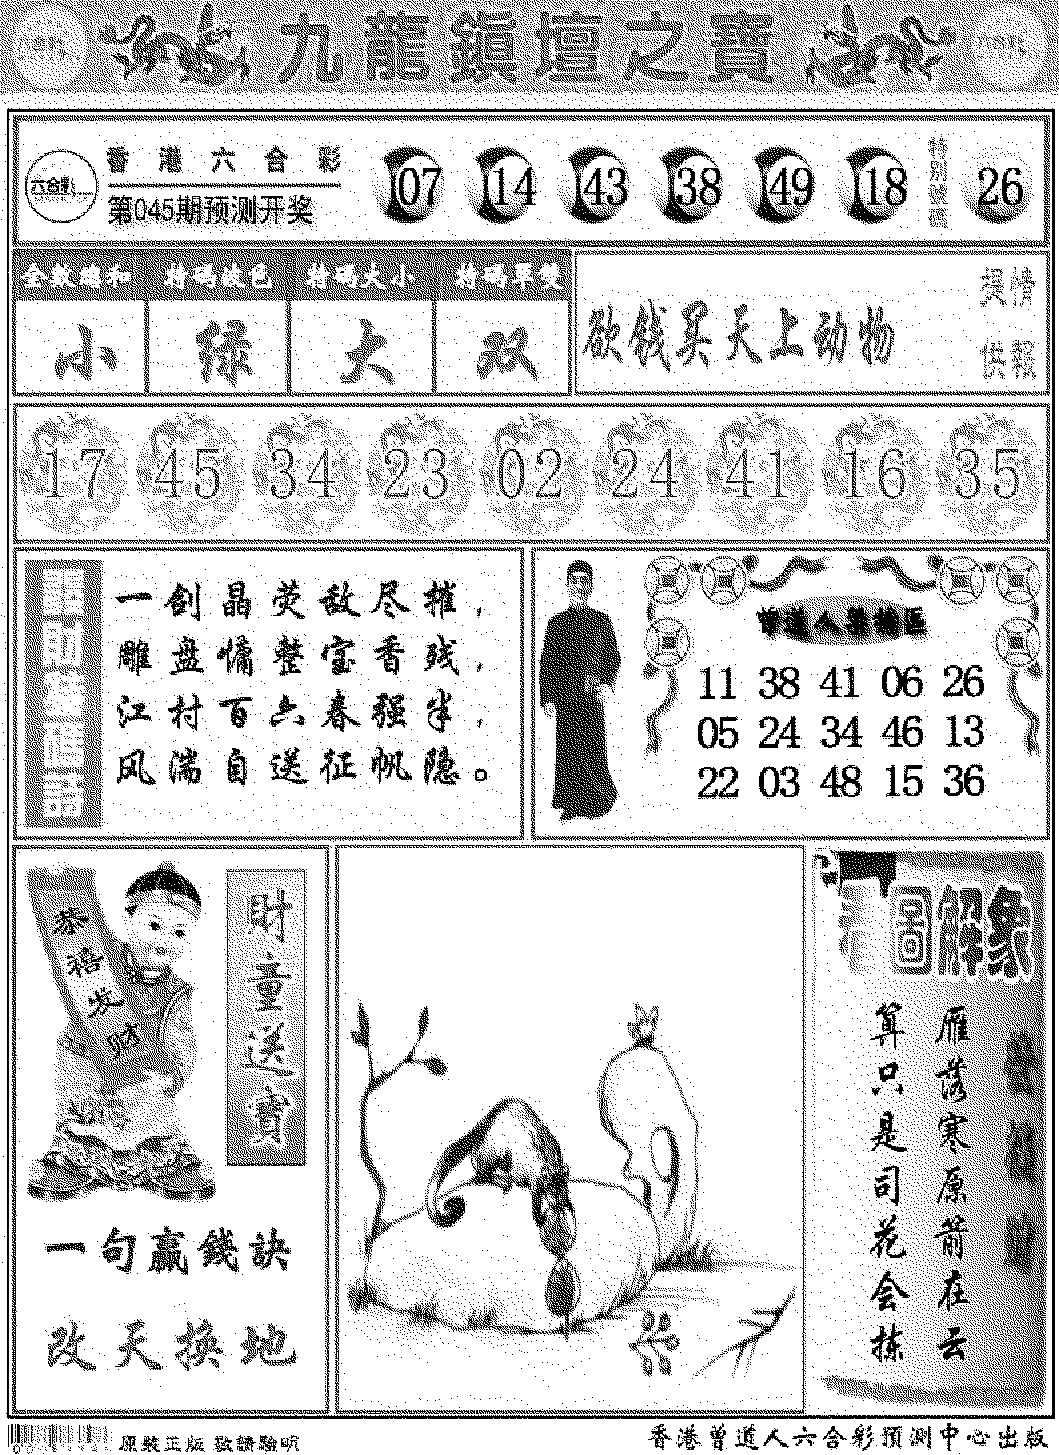 九龍鎮壇之寶
香港六合彩
六合彩
第045期预测开奖
07 14 43 38 49 18
特别號碼
26
全数總和 特码波色 特码大小 特码單雙
小 绿 大 双
欲钱买天上动物
提供
情報
17 45 34 23 02 24 41 16 35
一剑晶荧敌尽摧，
雕盘慵整宝香残，
江村百六春强半，
风湍自送征帆隐。
曾道人
11 38 41 06 26
05 24 34 46 13
22 03 48 15 36
恭禧发财
財童送寶
一句赢錢訣
改天换地
圖解象
雁落寒原箭在云
算只是司花会拣
原裝正版 敬請驗明
香港曾道人六合彩預测中心出版